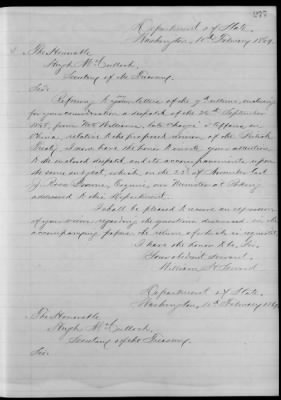 277
Department of State,
Washington, 10th February 1869.
The Honorable
Hugh McCulloch,
Secretary of the Treasury.
Sir:
Referring to your letter of the 9th ultimo, enclosing
for your consideration a despatch of the 26th September
1868, from Mr Williams, late Chargé d'Affaires in
China, relative to the proposed revision of the British
Treaty, I now have the honor to invite your attention
to the enclosed despatch, and its accompaniments, upon
the same subject, which on the 23d of November last
J. Ross Browne, Esquire, our Minister at Peking
addressed to this Department.
I shall be pleased to receive an expression
of your views regarding the questions discussed in the
accompanying papers, the return of which is requested.
I have the honor to be, Sir,
Your obedient servant,
William H. Seward
Department of State,
Washington, 10th February 1869.
The Honorable
Hugh McCulloch,
Secretary of the Treasury.
Sir: